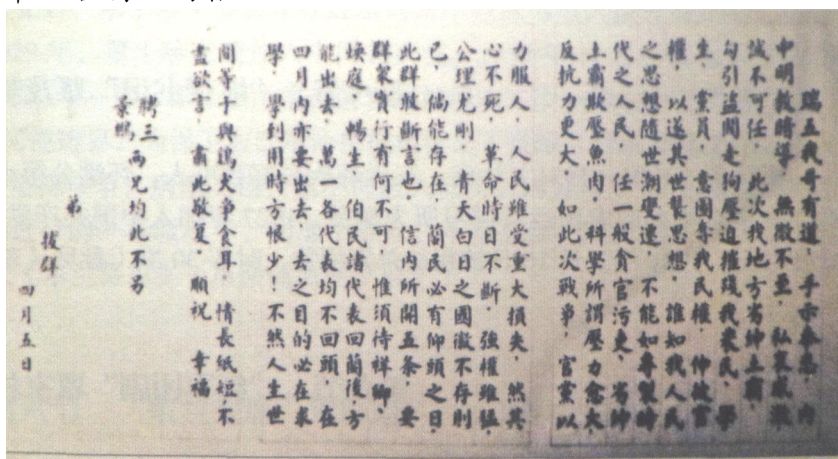 瑞五我哥有道：手示奉悉，内
申明教時導，無微不至，私衷感激
誠不可任，此次我地方劣紳土霸，
勾引盜閥走狗壓迫摧殘我農民、學
生、黨員，意圖奪我民權，伸彼官
權，以遂其世襲思想，誰知我人民
之思想隨世潮變遷，不能如專製時
代之人民，任一般貪官污吏、劣紳
土霸欺壓魚肉，科學所謂壓力愈大，
反抗力更大，如此次戰爭，官黨以
力服人，人民雖受重大損失，然其
心不死，革命時日不斷，強權雖猛，
公理尤剛，青天白日之國徽不存則
已，倘能存在，蘭民必有仰頭之日，
此群敢斷言也。信内所開五條，要
群衆實行有何不可，惟須待祥卿、
煥庭、暢生、伯民諸代表回蘭後，方
能出去，萬一各代表均不回頭，在
四月内亦要出去，去之目的必在求
學，學到用時方恨少！不然人生世
間等于與鷄犬爭食耳，情長紙短，不
盡欲言，肅此敬复，順祝 幸福
聘三
景鵬 兩兄均此不另
弟
拔群 四月五日